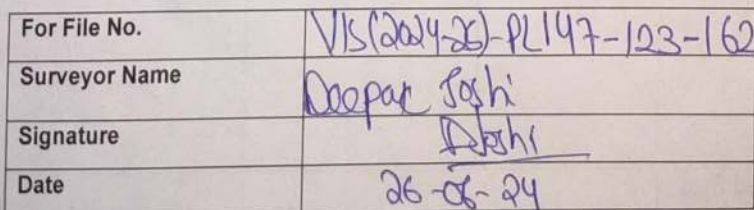 For File No. VIS(2024-25)-PL147-123-162
Surveyor Name Deepak Joshi
Signature DJoshi
Date 26-06-24